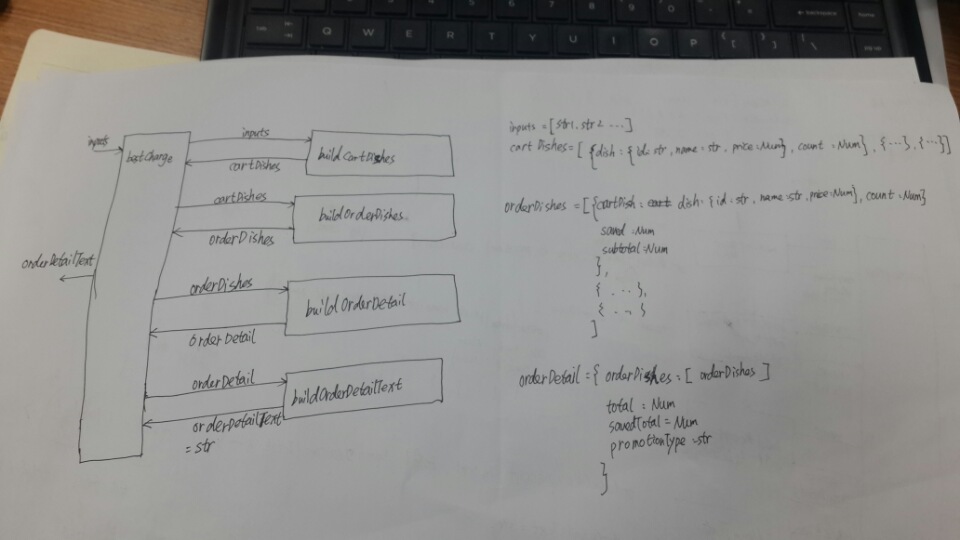 inputs
bestCharge
inputs
buildCartDishes
cartDishes
cartDishes
buildOrderDishes
orderDishes
orderDetailText
orderDishes
buildOrderDetail
orderDetail
orderDetail
buildOrderDetailText
orderDetailText
= str
inputs = [str1, str2 ....]
cartDishes = [ {dish : {id: str, name: str, price: Num}, count : Num}, {...}, {...}]
orderDishes = [{cartDish: dish: {id: str, name: str, price: Num}, count: Num}
saved :Num
subtotal :Num
},
{ ... },
{ ... }
]
orderDetail = { orderDishes = [ orderDishes ]
total = Num
savedTotal = Num
promotionType = str
}
Q W E R T Y U I O P { [ } ] | \
backspace
home